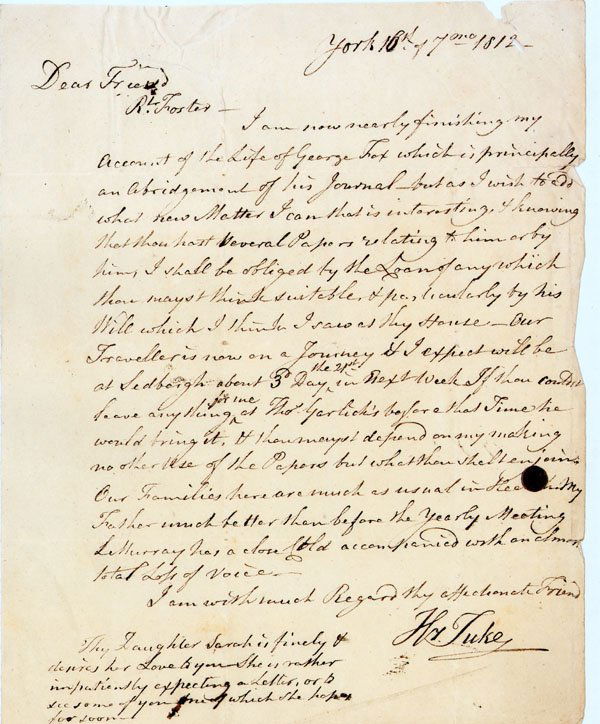 York 16th of 7mo 1812
Dear Friend
Rt. Foster —
I am now nearly finishing my
Account of the Life of George Fox which is principally
an Abridgement of his Journal — but as I wish to add
what new Matter I can that is interesting, & knowing
that thou hast several Papers relating to him or by
him, I shall be obliged by the Loan of any which
thou mayst think suitable, & particularly by his
Will which I think I saw at thy House — Our
Traveller is now on a Journey & I expect will be
at Sedbergh about 3d Day, the 21st, in next Week If thou couldst
leave anything for me at Thos. Garlick's before that Time he
would bring it, & thou mayst depend on my making
no other Use of the Papers but what thou shalt enjoin
Our Families here are much as usual in My
Father much better than before the Yearly Meeting
L Murray has a close Cold accompanied with an almost
total Loss of Voice —
I am with much Regard thy affectionate Friend
Hy. Tuke
Thy Daughter Sarah is finely &
desires her Love to you — She is rather
impatiently expecting a Letter, or to
see some of you of which she hopes
for soon —